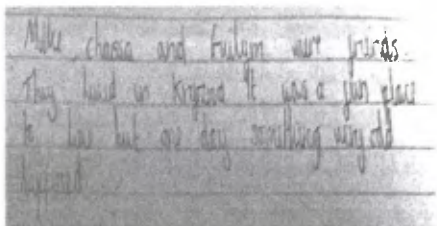 Mike, chasia and Evilym were friends.
They lived in It was a fun place
to live but one day something very odd
happened